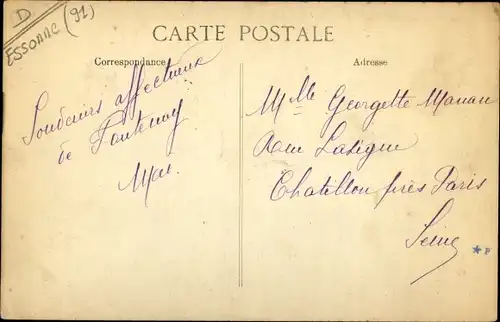 D
ESSONNE (91)
CARTE POSTALE
Correspondance
Adresse
Souvenirs affectueux
de Fontenay
Mlle Georgette
Chatillon près Paris
Seine